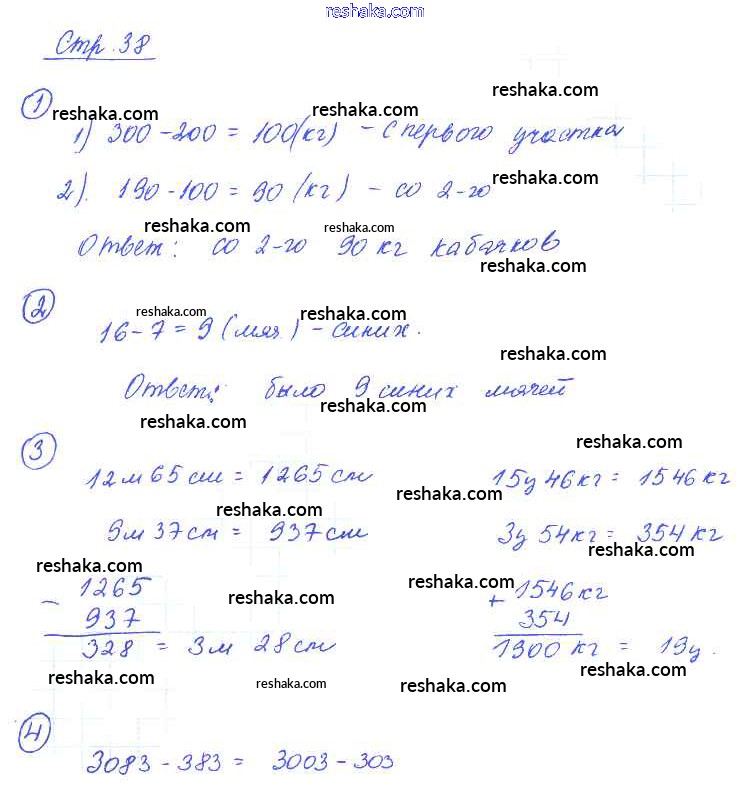 reshaka.com
Стр. 38
reshaka.com reshaka.com reshaka.com
1
1) 300-200 = 100(кг) - с первого участка
reshaka.com
2). 190-100 = 90 (кг) - со 2-го
reshaka.com reshaka.com
Ответ: со 2-го 90 кг кабачков
reshaka.com
2
reshaka.com reshaka.com
16-7 = 9 (мяч.) - синих.
reshaka.com
Ответ: было 9 синих мячей
reshaka.com reshaka.com
3
reshaka.com
12м 65см = 1265см 15ц 46кг = 1546кг
reshaka.com reshaka.com
9м 37см = 937см 3ц 54кг = 354кг
reshaka.com reshaka.com reshaka.com
- 1265 + 1546кг
937 354
328 = 3м 28см 1900 кг = 19ц.
reshaka.com reshaka.com reshaka.com reshaka.com
4
3083 - 383 = 3003 - 303